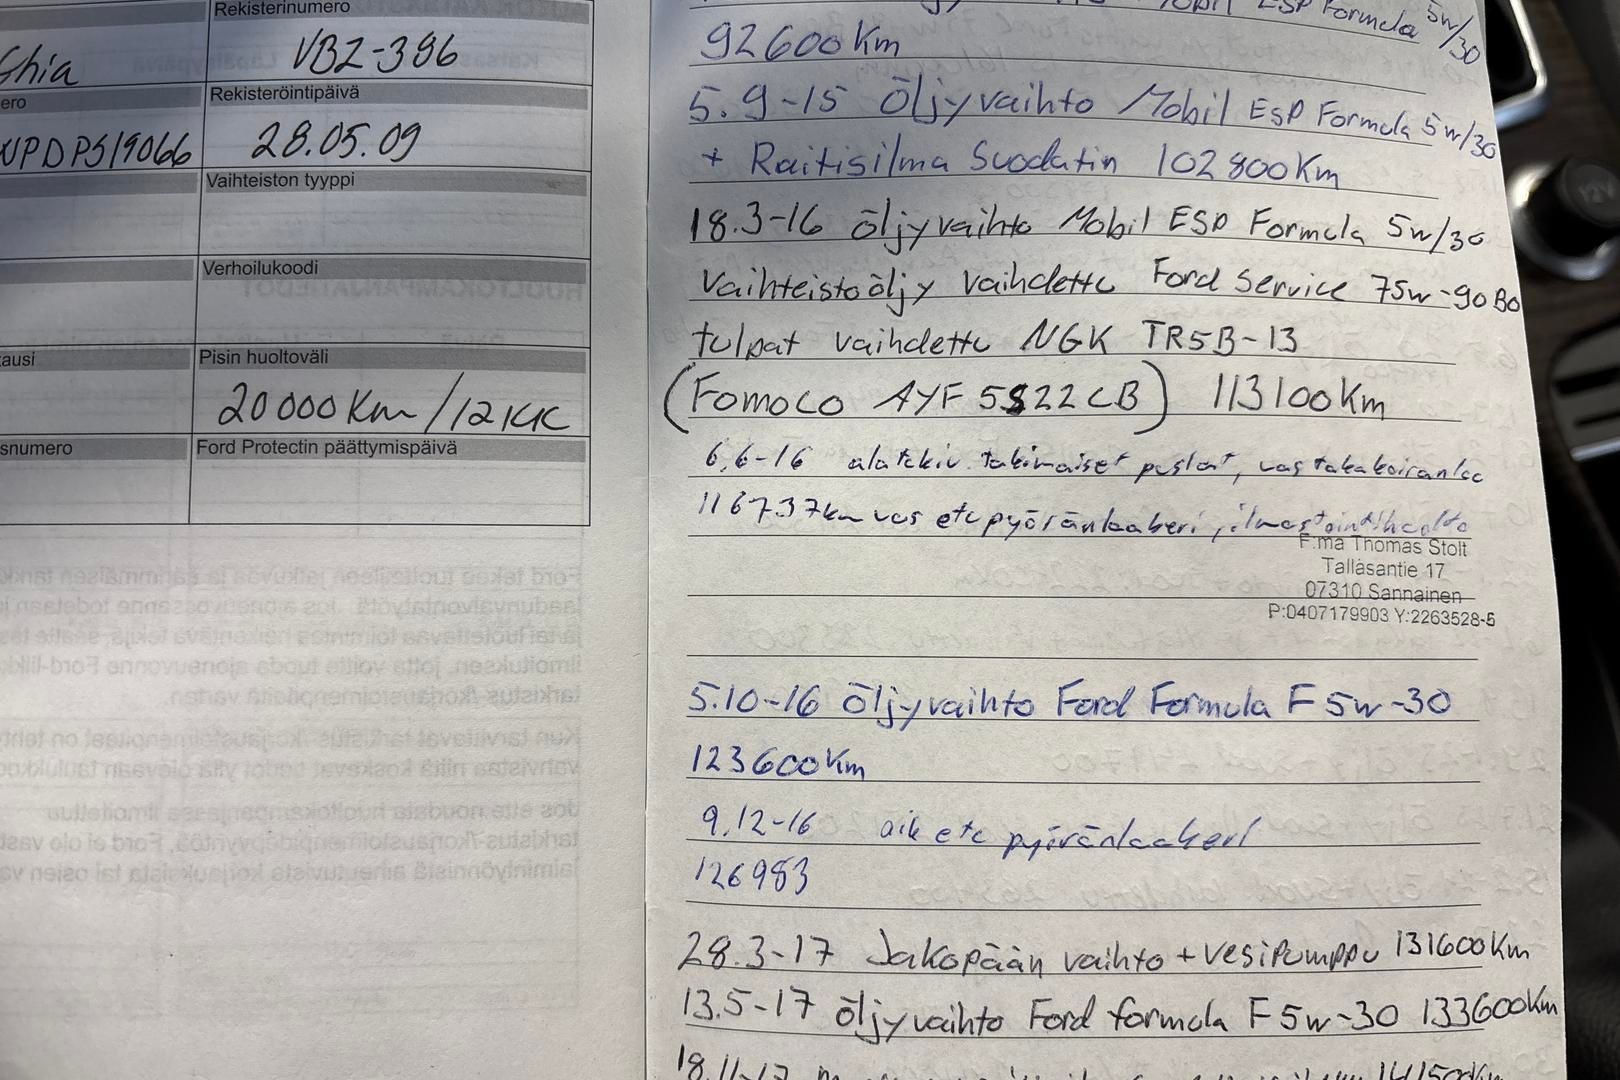 Rekisterinumero
Ghia
VBZ-386
ero
Rekisteröintipäivä
UPDPS19066
28.05.09
Vaihteiston tyyppi
Verhoilukoodi
ausi
Pisin huoltoväli
20000Km/12KK
snumero
Ford Protectin päättymispäivä
Mobil ESP Formula 5w/30
92600Km
5.9-15 Öljyvaihto Mobil ESP Formula 5w/30
+ Raitisilma Suodatin 102800Km
18.3-16 öljyvaihto Mobil ESP Formula 5w/30
Vaihteistoöljy vaihdettu Ford Service 75w-90 BO
tulpat vaihdettu NGK TR5B-13
(Fomoco AYF 5S22CB) 113100Km
6.6-16 alatukiv. takimaiset puslat, vas
116737km vas etu pyöränlaakeri, ilmastointihuolto
F:ma Thomas Stolt
Tallasantie 17
07310 Sannainen
P:0407179903 Y:2263528-5
5.10-16 öljyvaihto Ford Formula F 5w-30
123600Km
9.12-16 oik etu pyöränlaakeri
126983
28.3-17 Jakopään vaihto + vesipumppu 131600Km
13.5-17 öljyvaihto Ford formula F 5w-30 133600Km
18.11-17